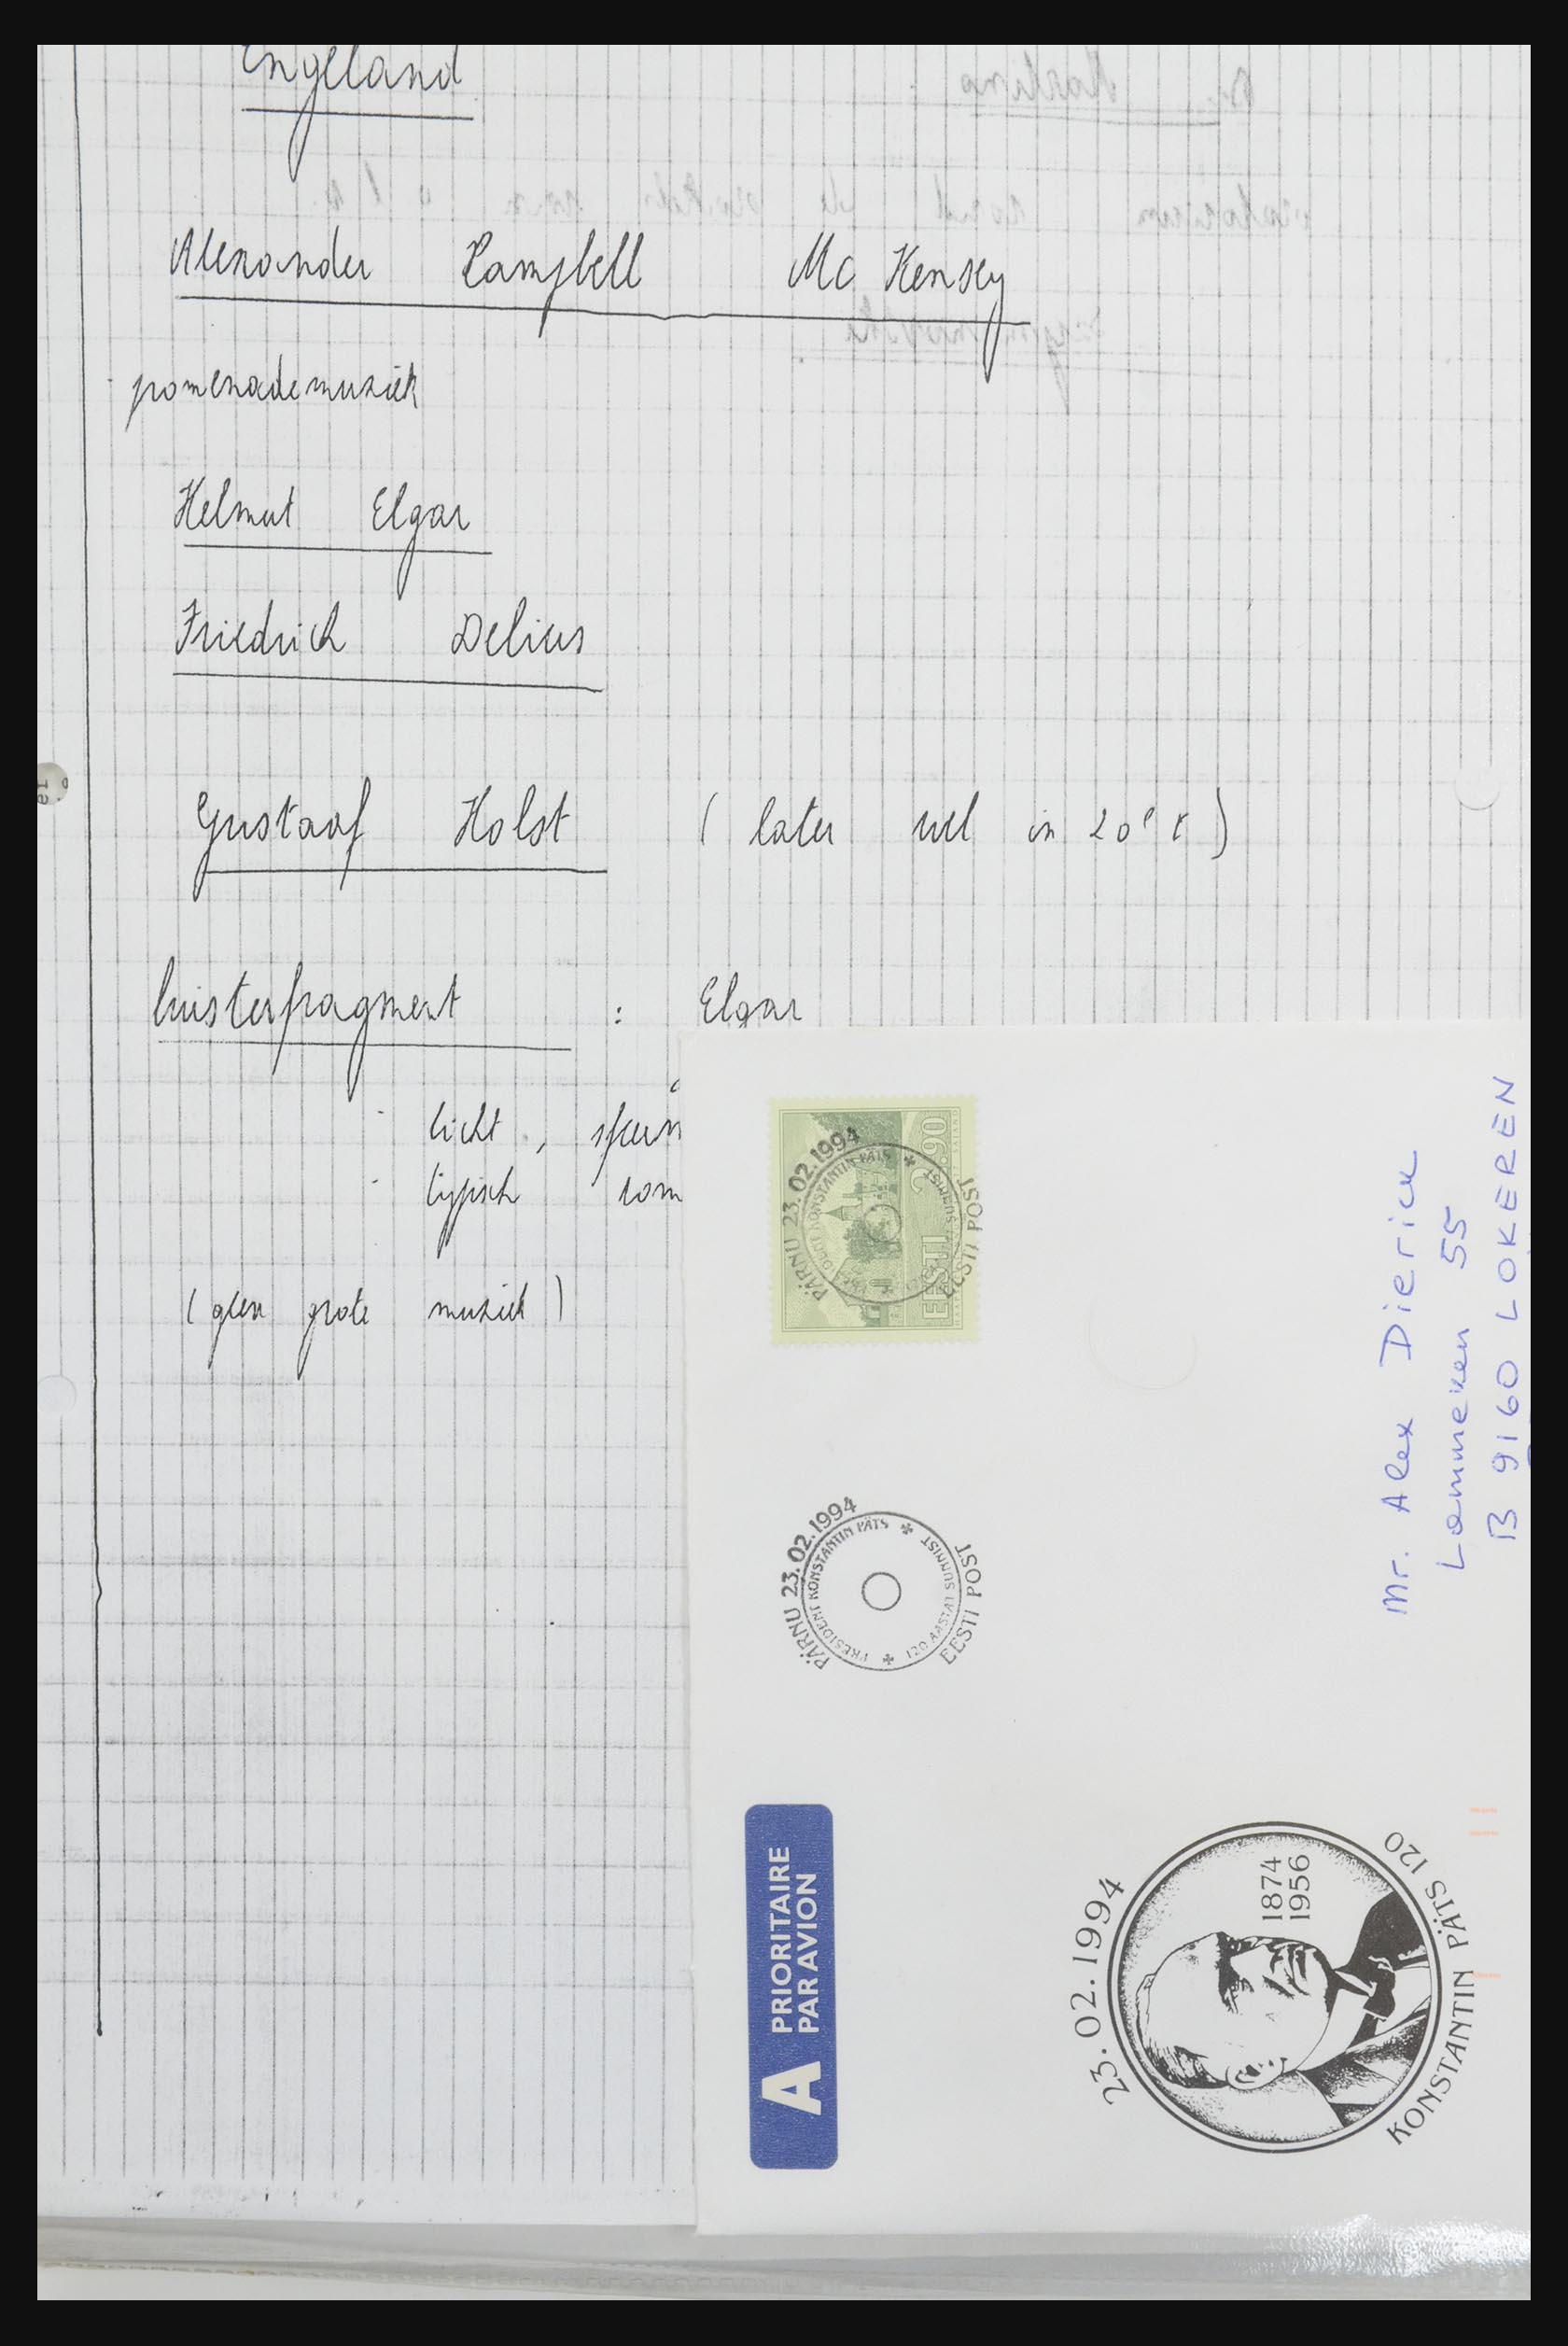 Engeland
Alexander Campbell Mc Kensey
promenademuziek
Helmut Elgar
Friedrich Delius
Gustaaf Holst ( later wel in 20e e )
luisterfragment : Elgar
licht ,
typisch rom
( geen grote muziek )
EESTI
PÄRNU 23.02.1994
PRESIDENT KONSTANTIN PÄTS
120 AASTAT SÜNNIST
EESTI POST
PÄRNU 23.02.1994
PRESIDENT KONSTANTIN PÄTS
120 AASTAT SÜNNIST
EESTI POST
Mr. Alex Dierick
Lommeken 55
B 9160 LOKEREN
A PRIORITAIRE
PAR AVION
23.02.1994
1874
1956
KONSTANTIN PÄTS 120